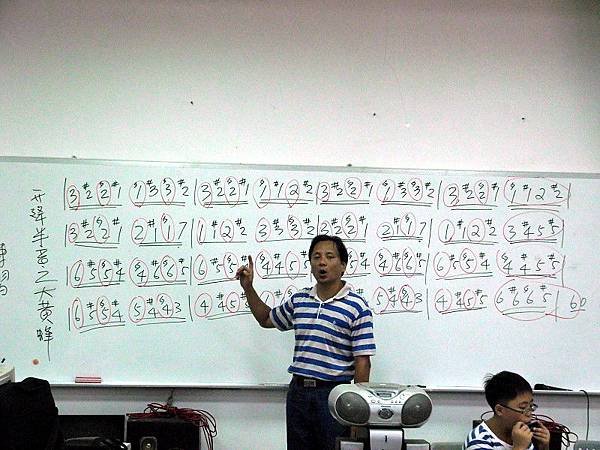 升降半音之大黃蜂
3 #2 ♮2 #1 ♮1 #3 ♮3 #2 | 3 #2 ♮2 #1 ♮1 #1 2 #2 | 3 #2 ♮2 #1 ♮1 #3 ♮3 #2 | 3 #2 ♮2 #1 ♮1 #1 2 #2 |
3 #2 ♮2 #1 2 #1 ♮1 7 | 1 #1 2 #2 3 #3 ♮3 #2 | 3 #2 ♮2 #1 2 #1 ♮1 7 | 1 #1 2 #2 3 4 #5 5 |
6 #5 ♮5 #4 ♮4 #6 ♮6 #5 | 6 #5 ♮5 #4 ♮4 #4 5 #5 | #5 4 ♮4 #6 ♮6 #5 | 6 #5 ♮5 #4 ♮4 #4 5 #5 |
6 #5 ♮5 #4 5 #4 ♮4 3 | 4 #4 5 #5 5 #4 ♮4 3 | 4 #4 5 #5 6 #6 ♮6 #5 | 6 0